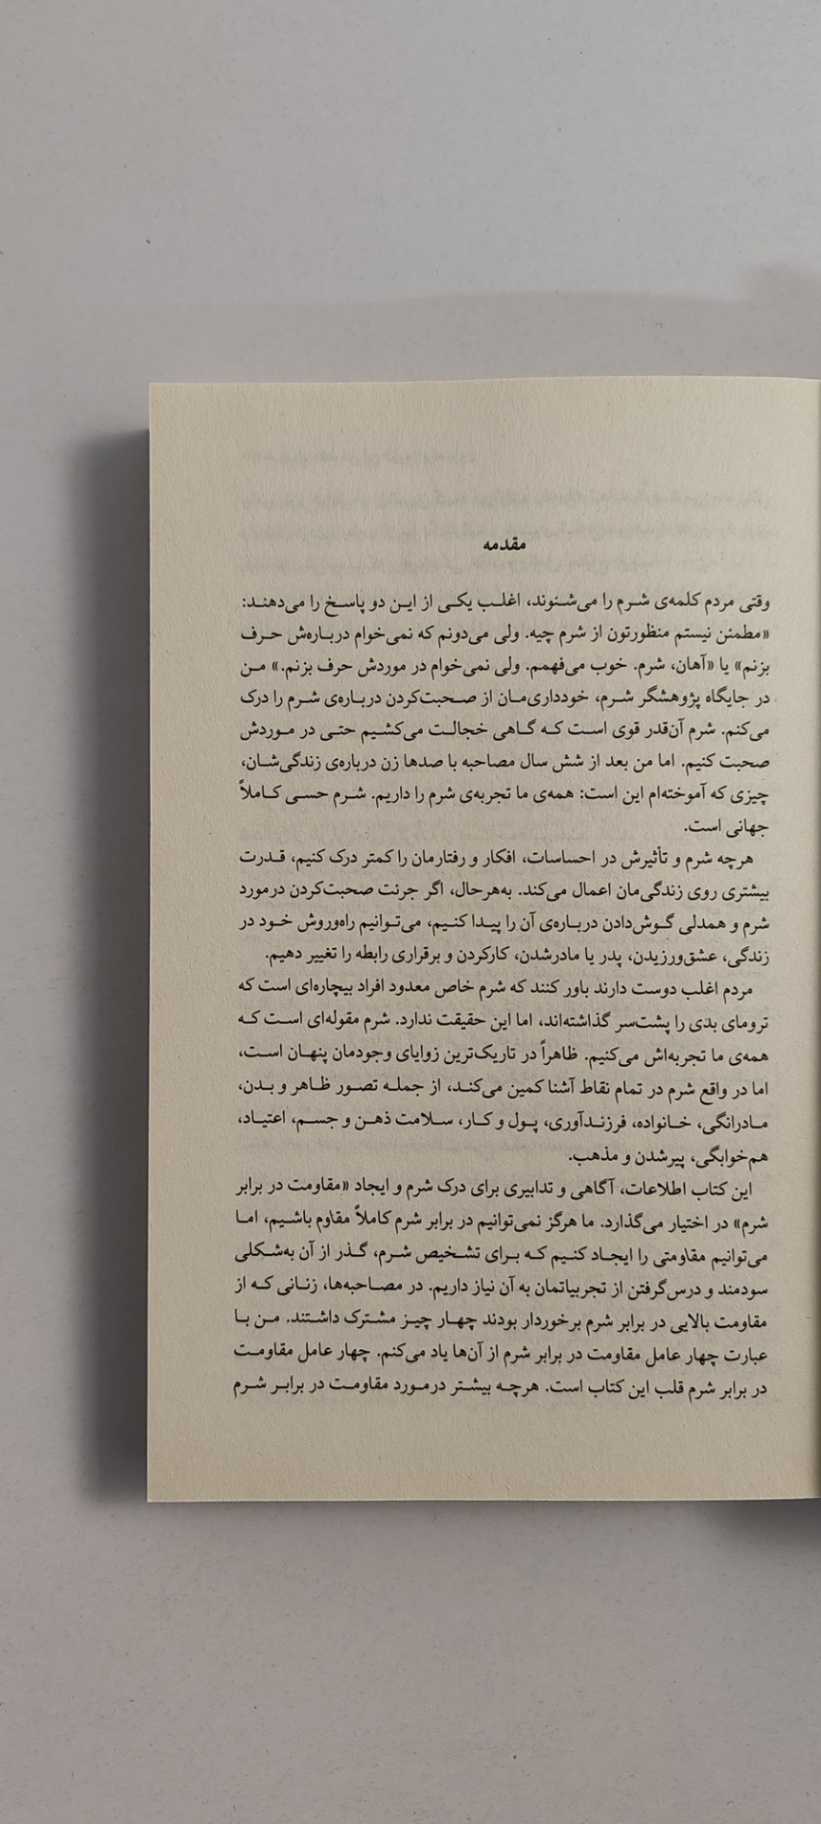 مقدمه
وقتی مردم کلمه‌ی شرم را می‌شنوند، اغلب یکی از این دو پاسخ را می‌دهند:
«مطمئن نیستم منظورتون از شرم چیه. ولی می‌دونم که نمی‌خوام درباره‌ش حرف
بزنم» یا «آهان، شرم. خوب می‌فهمم. ولی نمی‌خوام در موردش حرف بزنم.» من
در جایگاه پژوهشگر شرم، خودداری‌مان از صحبت‌کردن درباره‌ی شرم را درک
می‌کنم. شرم آن‌قدر قوی است که گاهی خجالت می‌کشیم حتی در موردش
صحبت کنیم. اما من بعد از شش سال مصاحبه با صدها زن درباره‌ی زندگی‌شان،
چیزی که آموخته‌ام این است: همه‌ی ما تجربه‌ی شرم را داریم. شرم حسی کاملاً
جهانی است.
هرچه شرم و تأثیرش در احساسات، افکار و رفتارمان را کمتر درک کنیم، قدرت
بیشتری روی زندگی‌مان اعمال می‌کند. به‌هرحال، اگر جرئت صحبت‌کردن درمورد
شرم و همدلی گوش‌دادن درباره‌ی آن را پیدا کنیم، می‌توانیم راه‌وروش خود در
زندگی، عشق‌ورزیدن، پدر یا مادرشدن، کارکردن و برقراری رابطه را تغییر دهیم.
مردم اغلب دوست دارند باور کنند که شرم خاص معدود افراد بیچاره‌ای است که
ترومای بدی را پشت‌سر گذاشته‌اند، اما این حقیقت ندارد. شرم مقوله‌ای است که
همه‌ی ما تجربه‌اش می‌کنیم. ظاهراً در تاریک‌ترین زوایای وجودمان پنهان است،
اما در واقع شرم در تمام نقاط آشنا کمین می‌کند، از جمله تصور ظاهر و بدن،
مادرانگی، خانواده، فرزندآوری، پول و کار، سلامت ذهن و جسم، اعتیاد،
هم‌خوابگی، پیرشدن و مذهب.
این کتاب اطلاعات، آگاهی و تدابیری برای درک شرم و ایجاد «مقاومت در برابر
شرم» در اختیار می‌گذارد. ما هرگز نمی‌توانیم در برابر شرم کاملاً مقاوم باشیم، اما
می‌توانیم مقاومتی را ایجاد کنیم که برای تشخیص شرم، گذر از آن به‌شکلی
سودمند و درس‌گرفتن از تجربیاتمان به آن نیاز داریم. در مصاحبه‌ها، زنانی که از
مقاومت بالایی در برابر شرم برخوردار بودند چهار چیز مشترک داشتند. من با
عبارت چهار عامل مقاومت در برابر شرم از آن‌ها یاد می‌کنم. چهار عامل مقاومت
در برابر شرم قلب این کتاب است. هرچه بیشتر درمورد مقاومت در برابر شرم